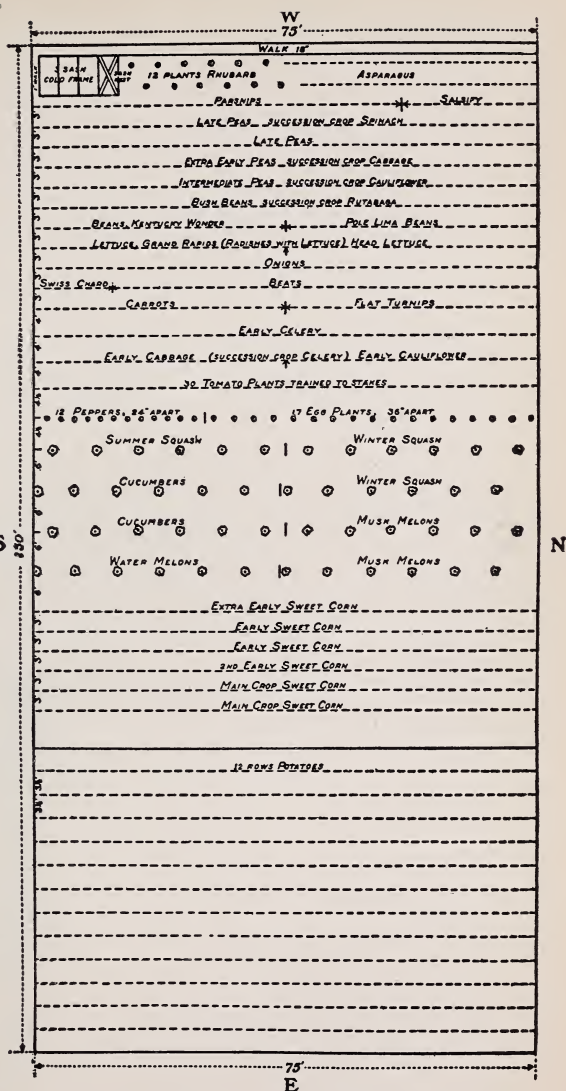 W
75'
WALK 18"
SASH COLD FRAME
12 PLANTS RHUBARB
ASPARAGUS
PARSNIPS SALSIFY
LATE PEAS SUCCESSION CROP SPINACH
LATE PEAS
EXTRA EARLY PEAS SUCCESSION CROP CABBAGE
INTERMEDIATE PEAS SUCCESSION CROP CAULIFLOWER
BUSH BEANS SUCCESSION CROP RUTABAGA
BEANS, KENTUCKY WONDER POLE LIMA BEANS
LETTUCE, GRAND RAPIDS (RADISHES WITH LETTUCE) HEAD LETTUCE
ONIONS
SWISS CHARD BEATS
CARROTS FLAT TURNIPS
EARLY CELERY
EARLY CABBAGE (SUCCESSION CROP CELERY) EARLY CAULIFLOWER
30 TOMATO PLANTS TRAINED TO STAKES
12 PEPPERS, 24" APART 17 EGG PLANTS, 36" APART
SUMMER SQUASH WINTER SQUASH
CUCUMBERS WINTER SQUASH
CUCUMBERS MUSK MELONS
S 150' N
WATER MELONS MUSK MELONS
EXTRA EARLY SWEET CORN
EARLY SWEET CORN
EARLY SWEET CORN
2ND EARLY SWEET CORN
MAIN CROP SWEET CORN
MAIN CROP SWEET CORN
12 ROWS POTATOES
75'
E